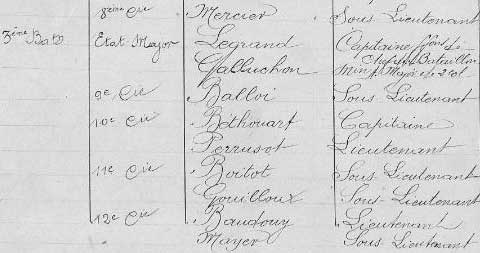 8eme Cie Mercier Sous Lieutenant
3ème Baton Etat Mayor Legrand Capitaine ffons de Chef de Bataillon
Galluchon Min f. Major de 2 cl
9e Cie Balloi Sous Lieutenant
10e Cie Bethouart Capitaine
Perrusot Lieutenant
11e Cie Boitot Sous-Lieutenant
Gouilloux Sous-Lieutenant
12e Cie Baudouy Lieutenant
Mayer Sous Lieutenant